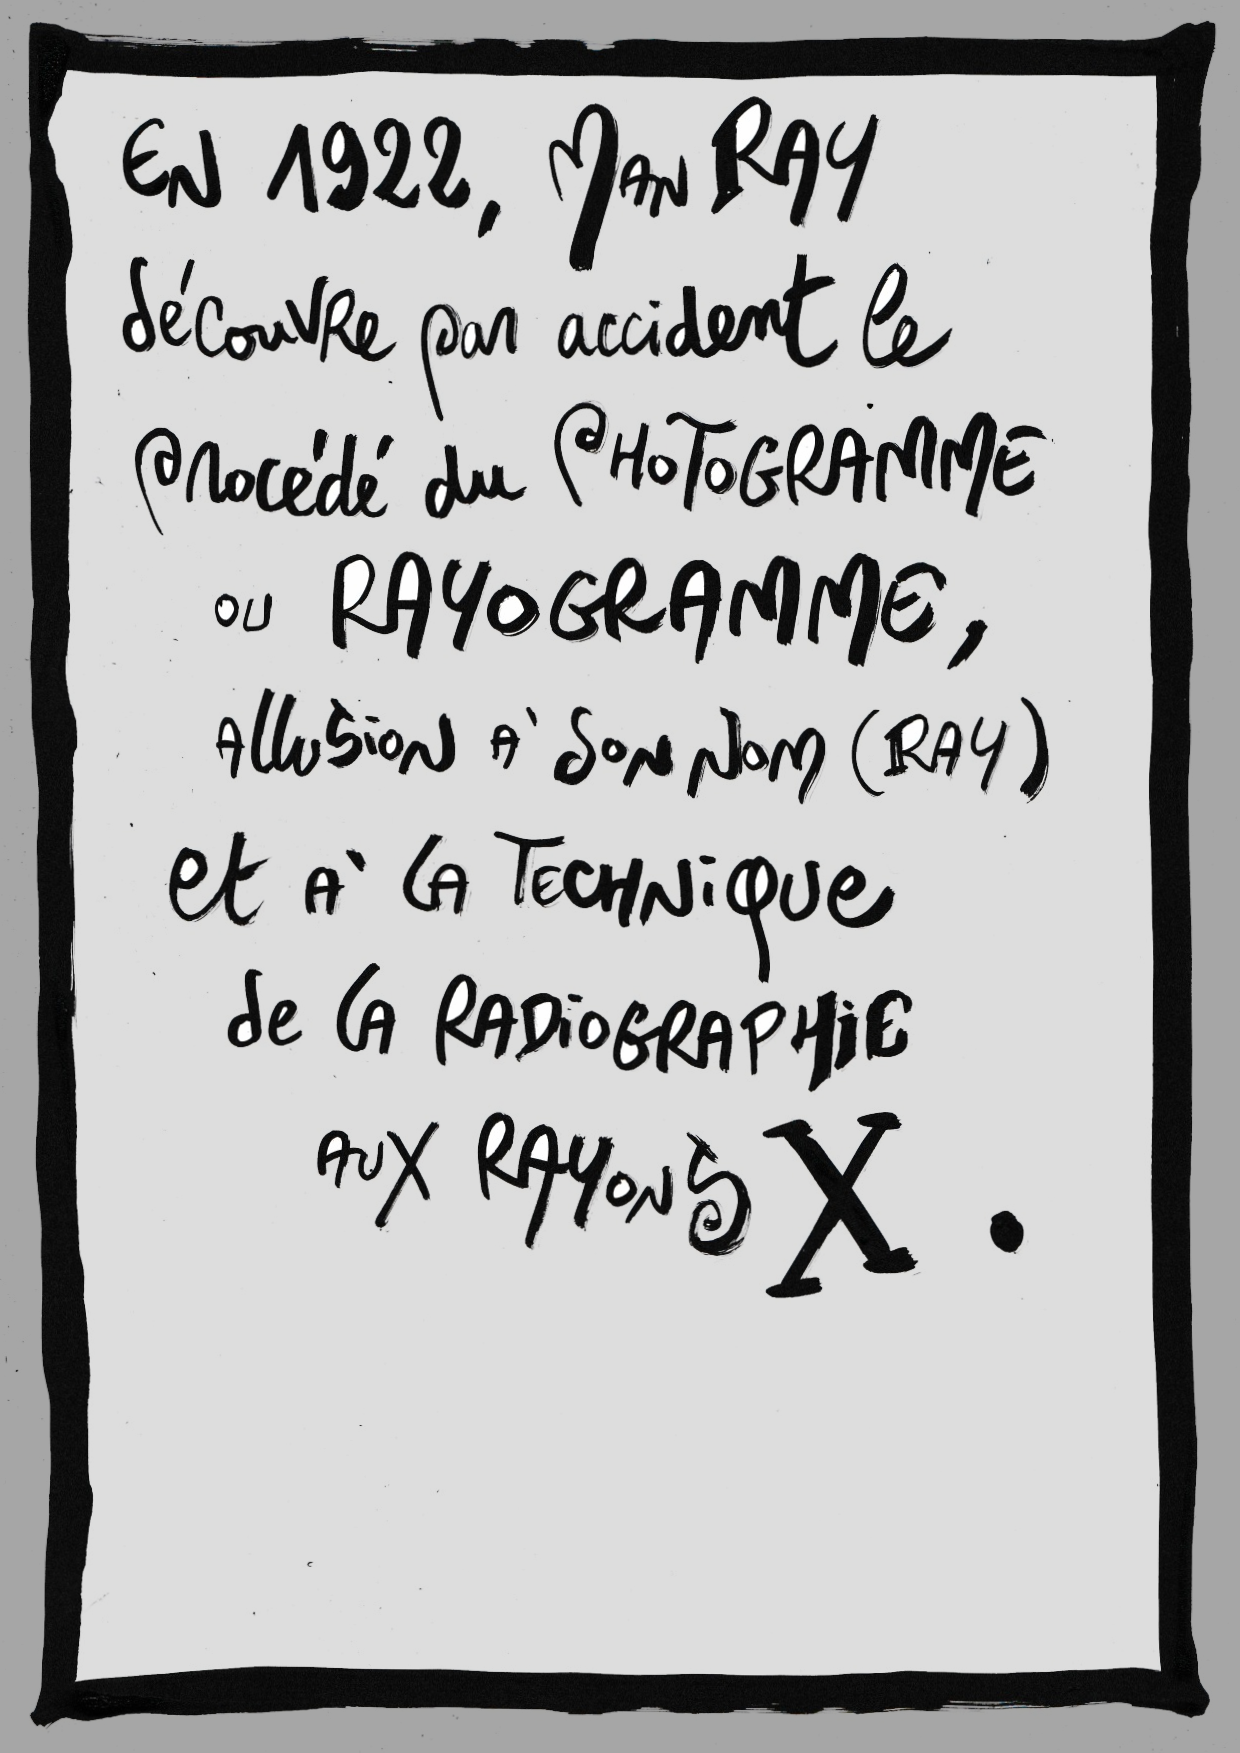 EN 1922, MAN RAY
découvre par accident le
procédé du PHOTOGRAMME
OU RAYOGRAMME,
Allusion à son nom (RAY)
et à la TECHNique
de la RADioGRAPHiE
AUX RAYONS X.